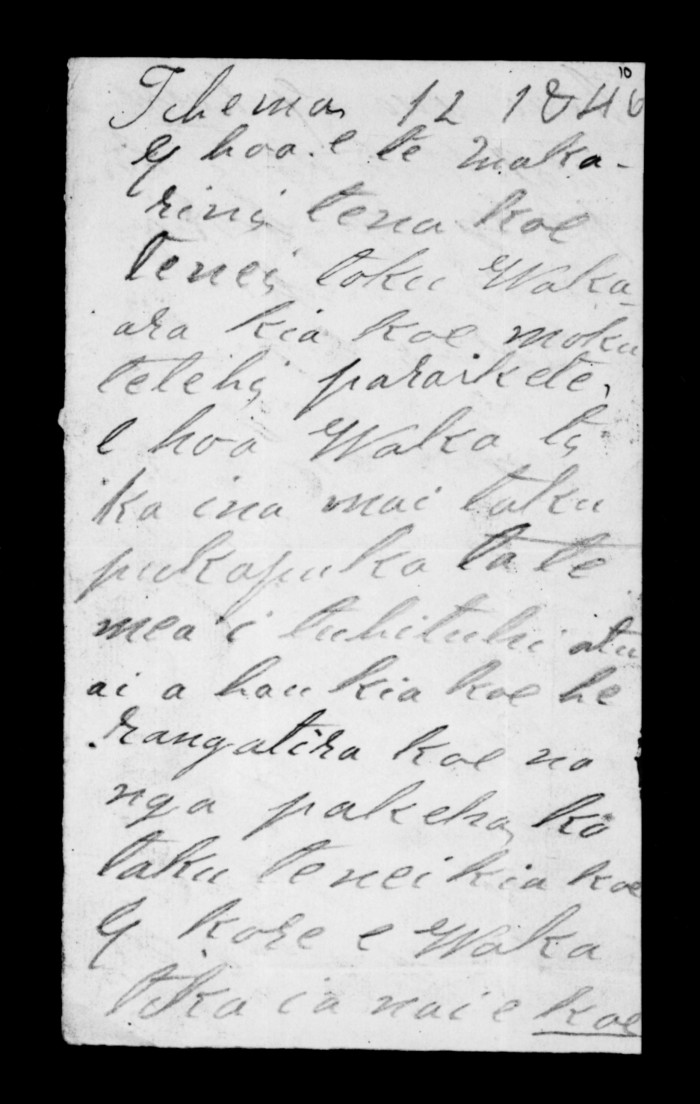 10
Tihema 12 1846
E hoa e te Maka-
rini tena koe
tenei toku Waka-
ara kia koe moku
tetehi paraikete,
e hoa Waka ti
ka ina mai taku
pukapuka ta te
mea i tuhituhi atu
ai a hau kia koe he
rangatira koe no
nga pakeha ko
taku tenei kia koe
E kore e Waka
tika ia nai e koe